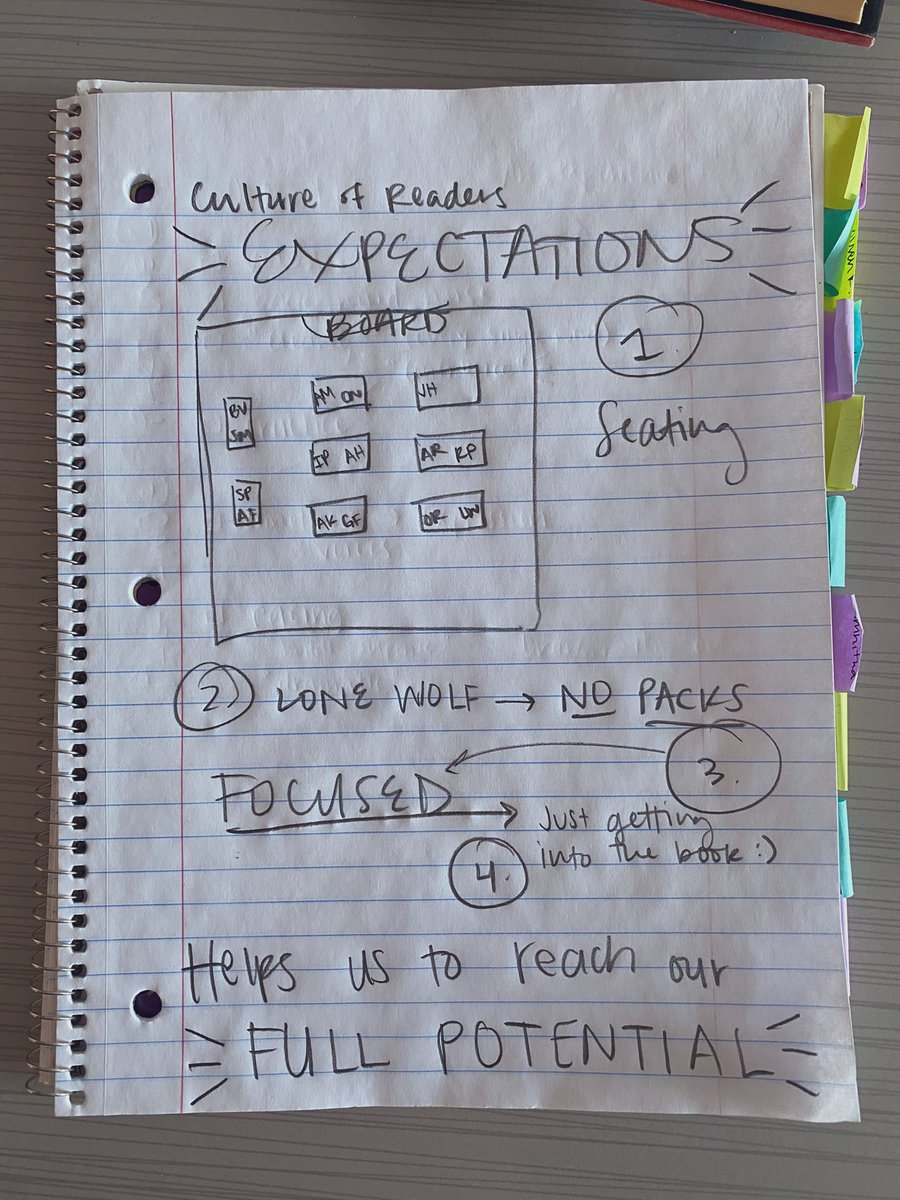 Culture of Readers
EXPECTATIONS
BOARD
1.
Seating
AM
JH
BV
SM
IP AH
AR RP
SP
AF
AK GF
OR
2) LONE WOLF → NO PACKS
3.
FOCUSED →
Just getting
into the book :)
4.
Helps us to reach our
FULL POTENTIAL